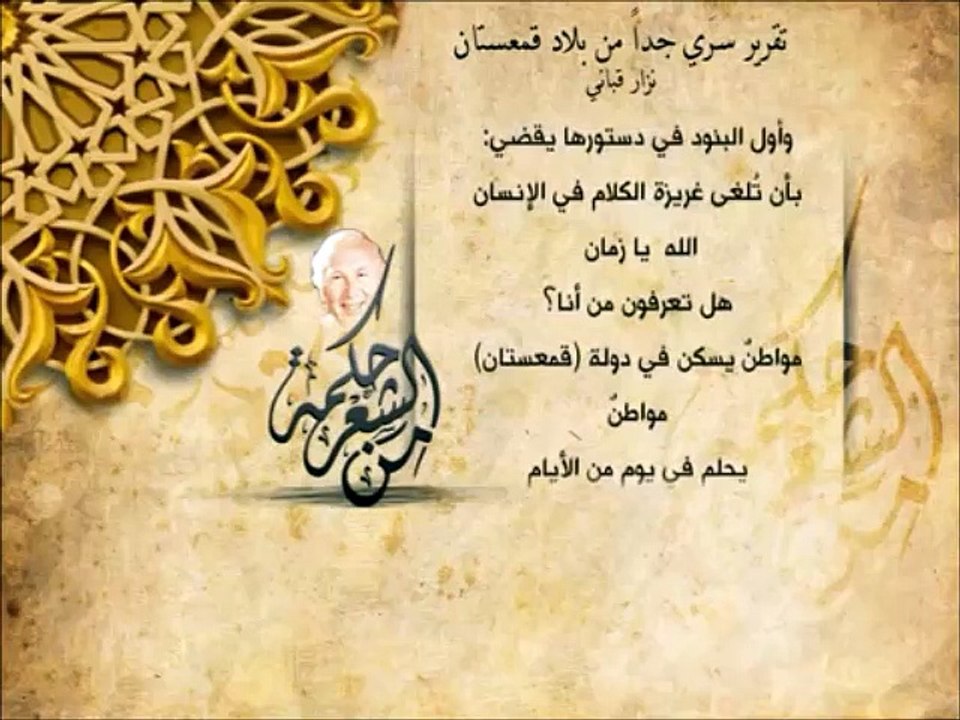 تقرير سري جداً من بلاد قمعستان
نزار قباني
وأول البنود في دستورها يقضي:
بأن تُلغى غريزة الكلام في الإنسان
الله يا زمان
هل تعرفون من أنا؟
مواطنٌ يسكن في دولة (قمعستان)
مواطنٌ
يحلم في يوم من الأيام
من الشعر حكمة